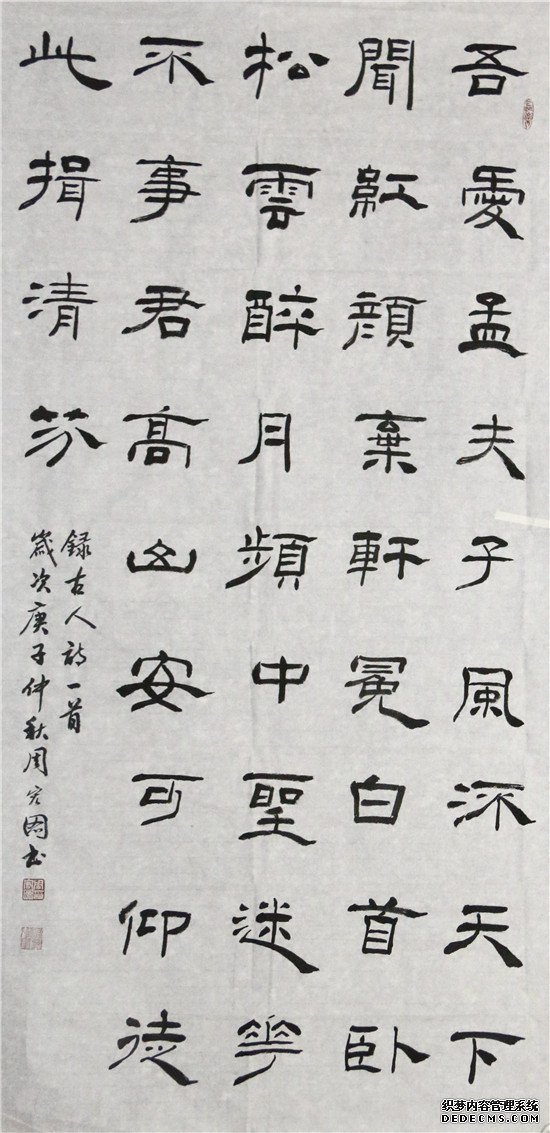 吾愛孟夫子風流天下
聞紅顏棄軒冕白首臥
松雲醉月頻中聖迷花
不事君高山安可仰徒
此揖清芬
録古人詩一首
歲次庚子仲秋周宏图书
织梦内容管理系统
DEDECMS.COM